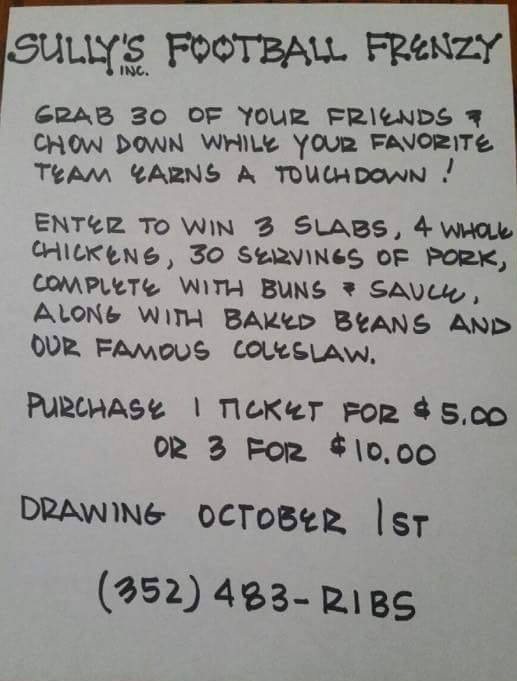 SULLY'S FOOTBALL FRENZY
INC.
GRAB 30 OF YOUR FRIENDS &
CHOW DOWN WHILE YOUR FAVORITE
TEAM EARNS A TOUCHDOWN!
ENTER TO WIN 3 SLABS, 4 WHOLE
CHICKENS, 30 SERVINGS OF PORK,
COMPLETE WITH BUNS & SAUCE,
ALONG WITH BAKED BEANS AND
OUR FAMOUS COLESLAW.
PURCHASE 1 TICKET FOR $5.00
OR 3 FOR $10.00
DRAWING OCTOBER 1ST
(352) 483-RIBS